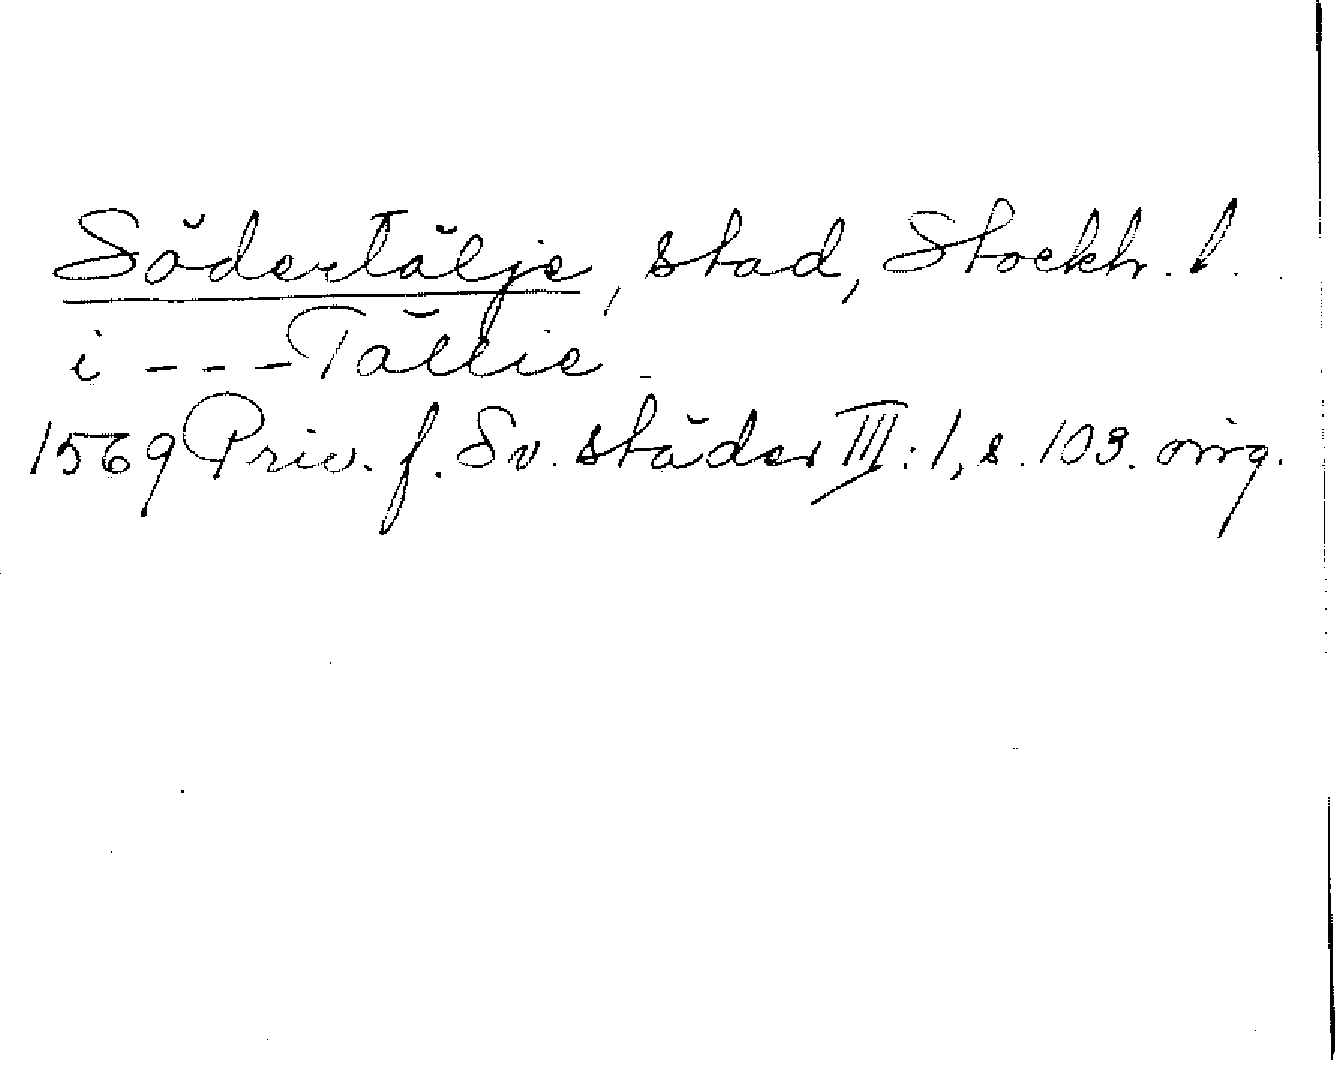 Södertälje, stad, Stockh. l.
i --- Tällie.
1569 Priv. f. Sv. städer III:1, s. 103. orig.